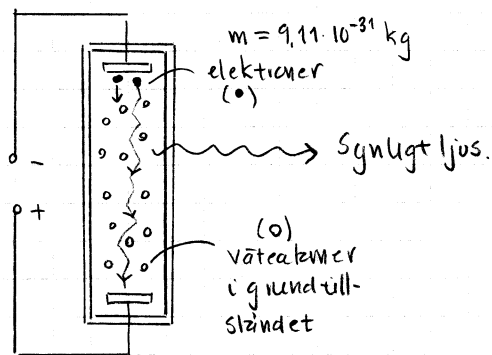 m = 9,11·10⁻³¹ kg
elektroner
(•)
-
+
Synligt ljus.
(o)
väteatomer
i grundtill-
ståndet